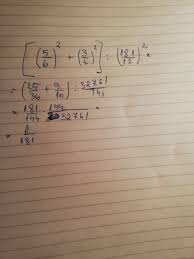 [(5/6)² + (3/6)²] : (181/12)² =
= (25/36 + 9/10) : 32761/144 =
= 181/144 · 144/32761 =
= 1/181